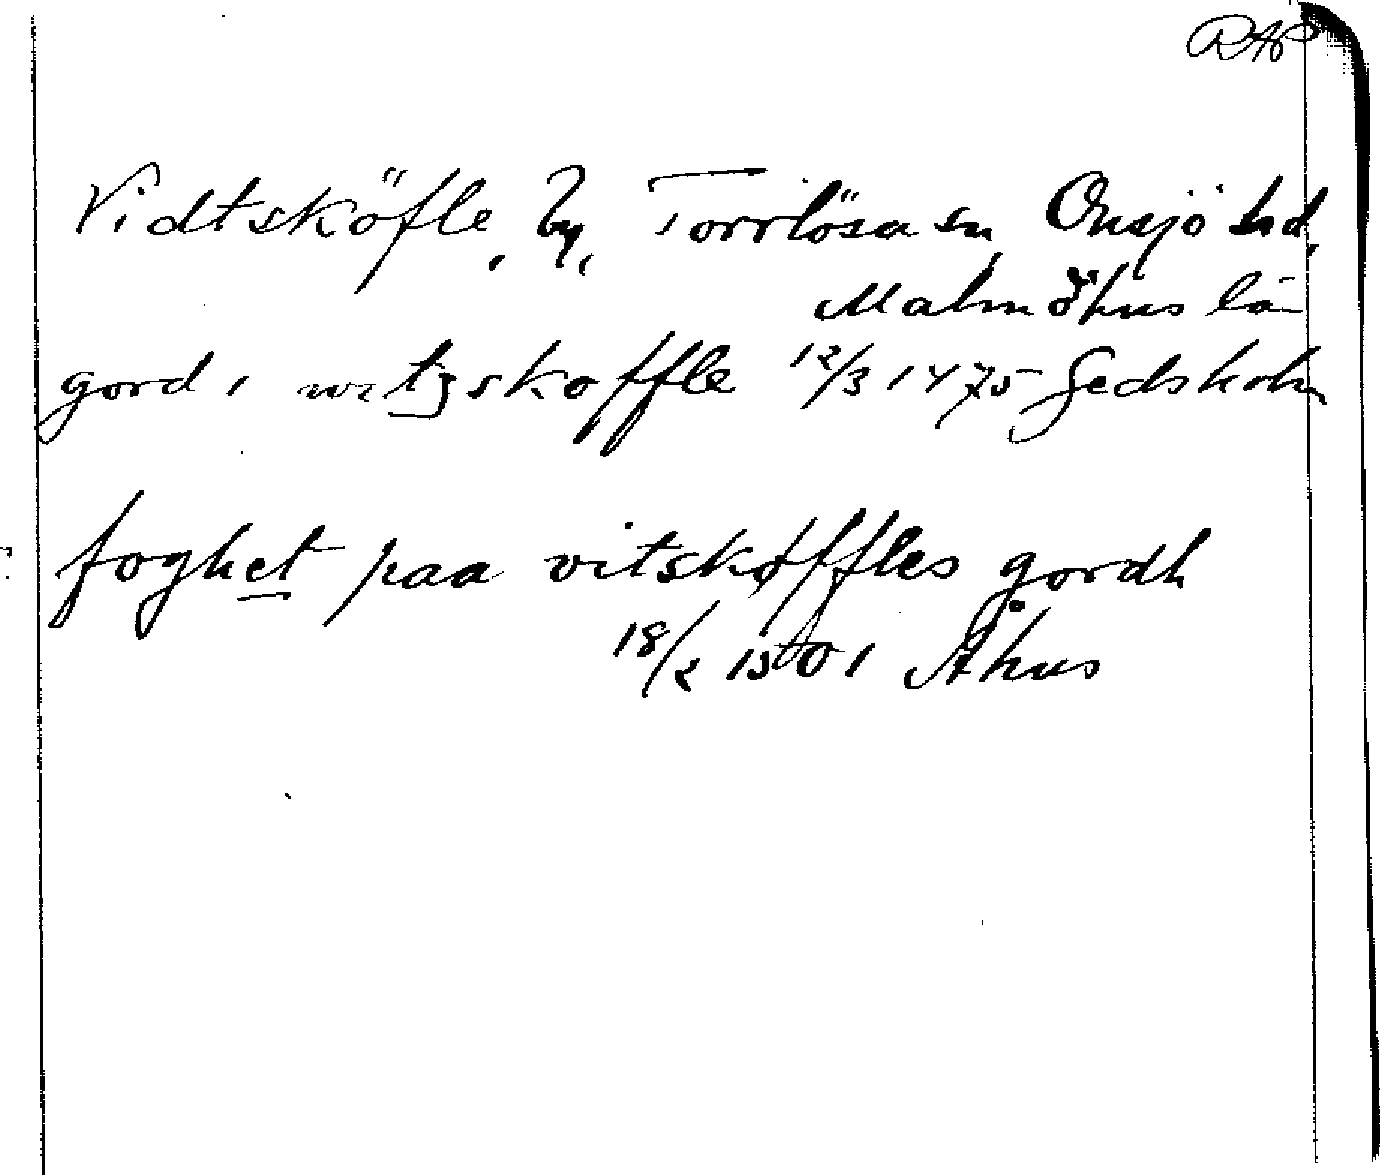 RAP
Vidtsköfle, by, Torrlösa sn, Onsjö hd,
Malmöhus lä
gord i witzskoffle 12/3 1475 Gedsholm
foghet paa vitskøffles gordh
18/2 1501 Åhus